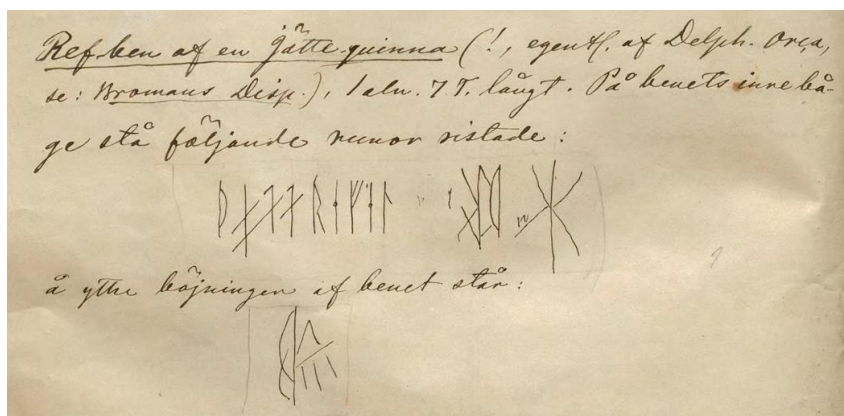 Ref-ben af en Jätte-quinna (!, egentl. af Delph. Orca,
se: Bromans Disp.), 1 aln. 7 T. långt. På benets inre bå-
ge stå följande runor ristade:
å yttre böjningen af benet står: